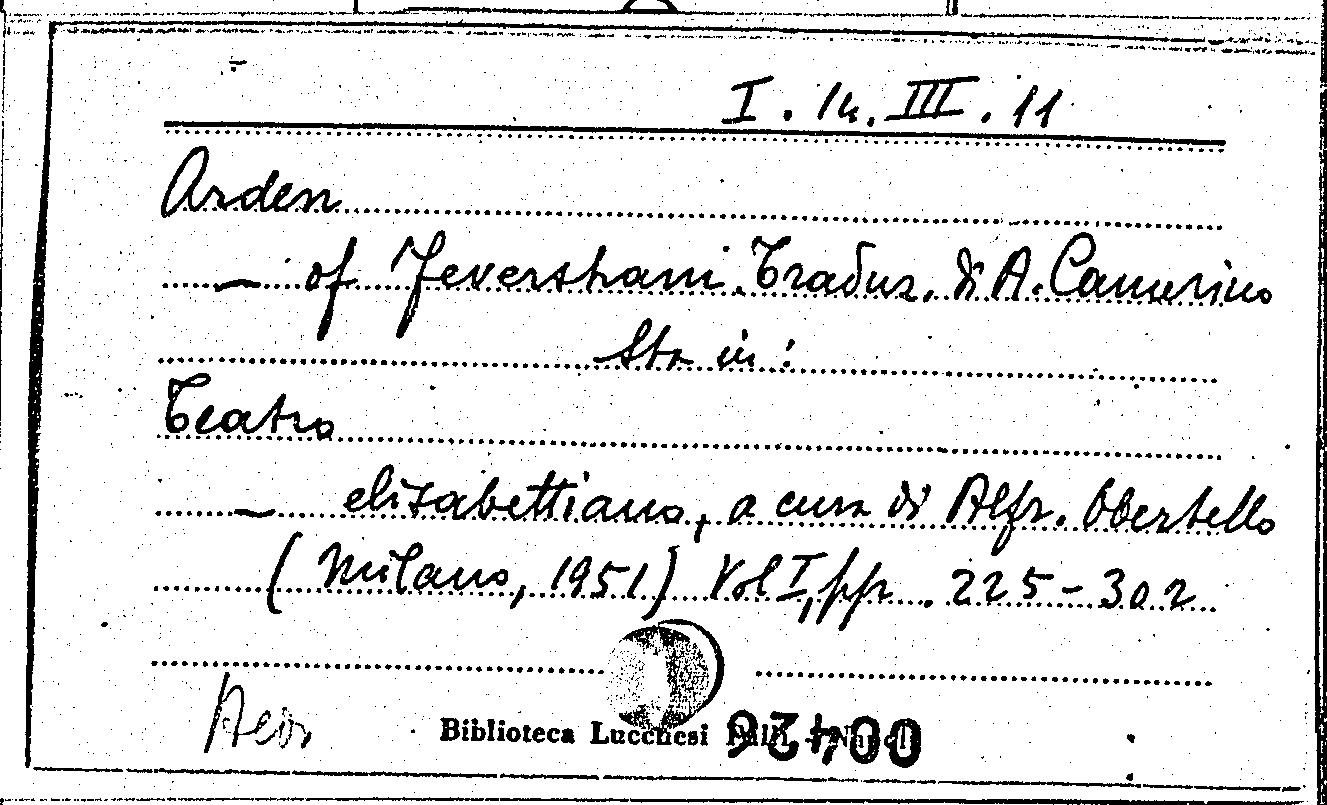 I. 14. III. 11
Arden
— of Feversham. Traduz. di A. Camerino
Sta in:
Teatro
— elisabettiano, a cura di Alfr. Obertello
(Milano, 1951) Vol I, pp. 225-302
Biblioteca Lucchesi Palli - Napoli